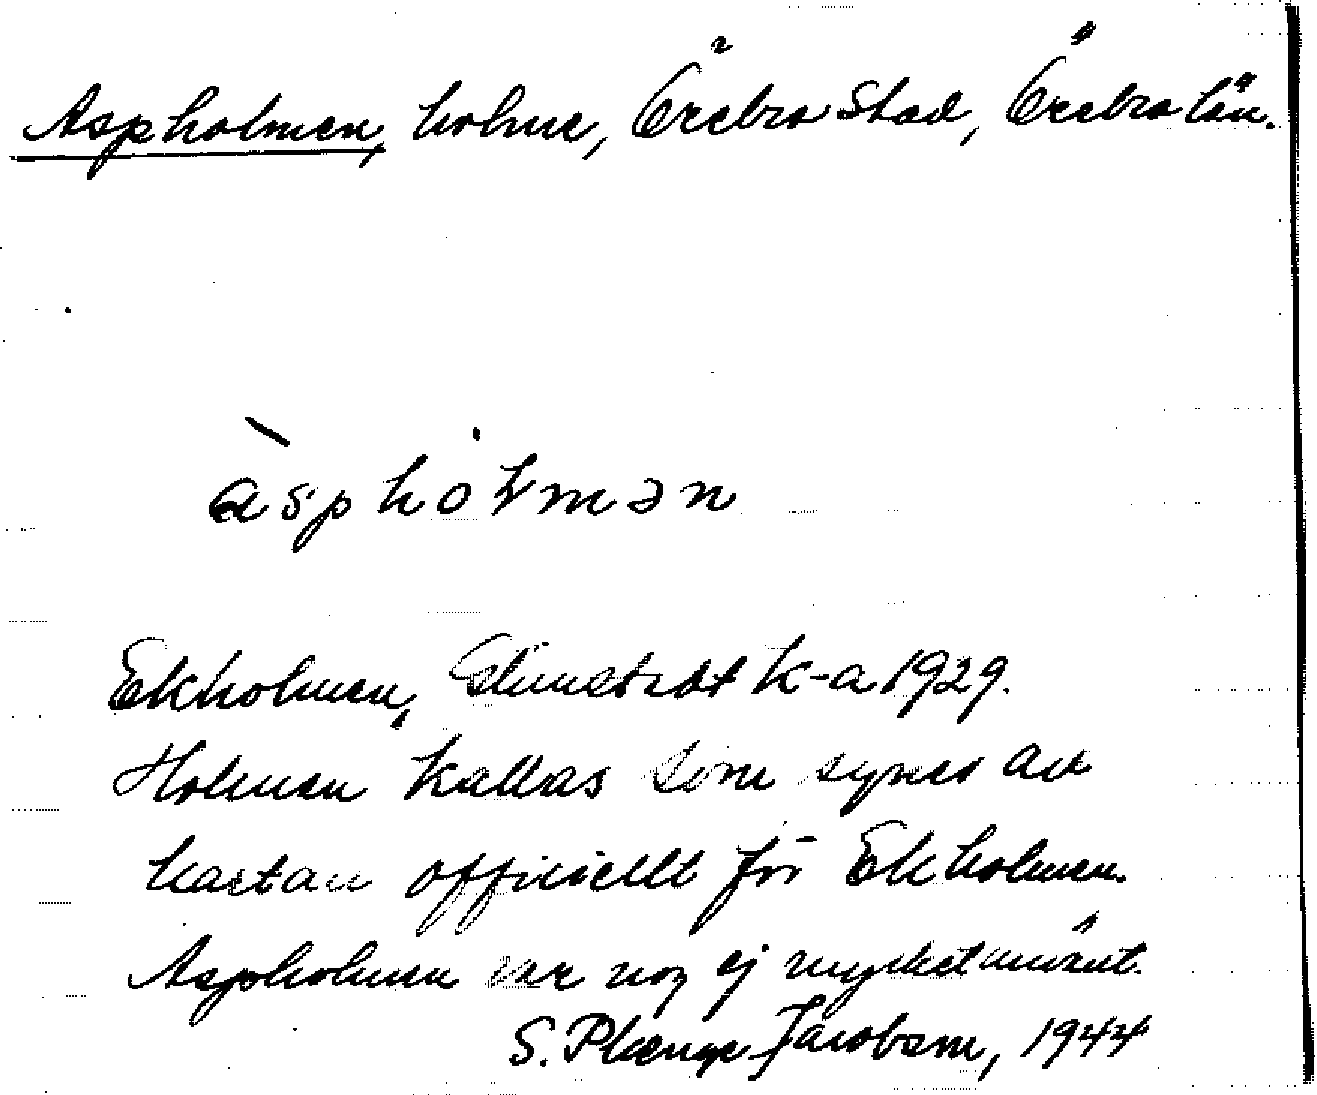 Aspholmen, holme, Örebro Stad, Örebro län.
àsphòɫmən
Ekholmen, K-a 1929.
Holmen kallas som synes av
kartan officiellt för Ekholmen.
Aspholmen var nog ej mycket använt.
S. Plenge Jacobson, 1944